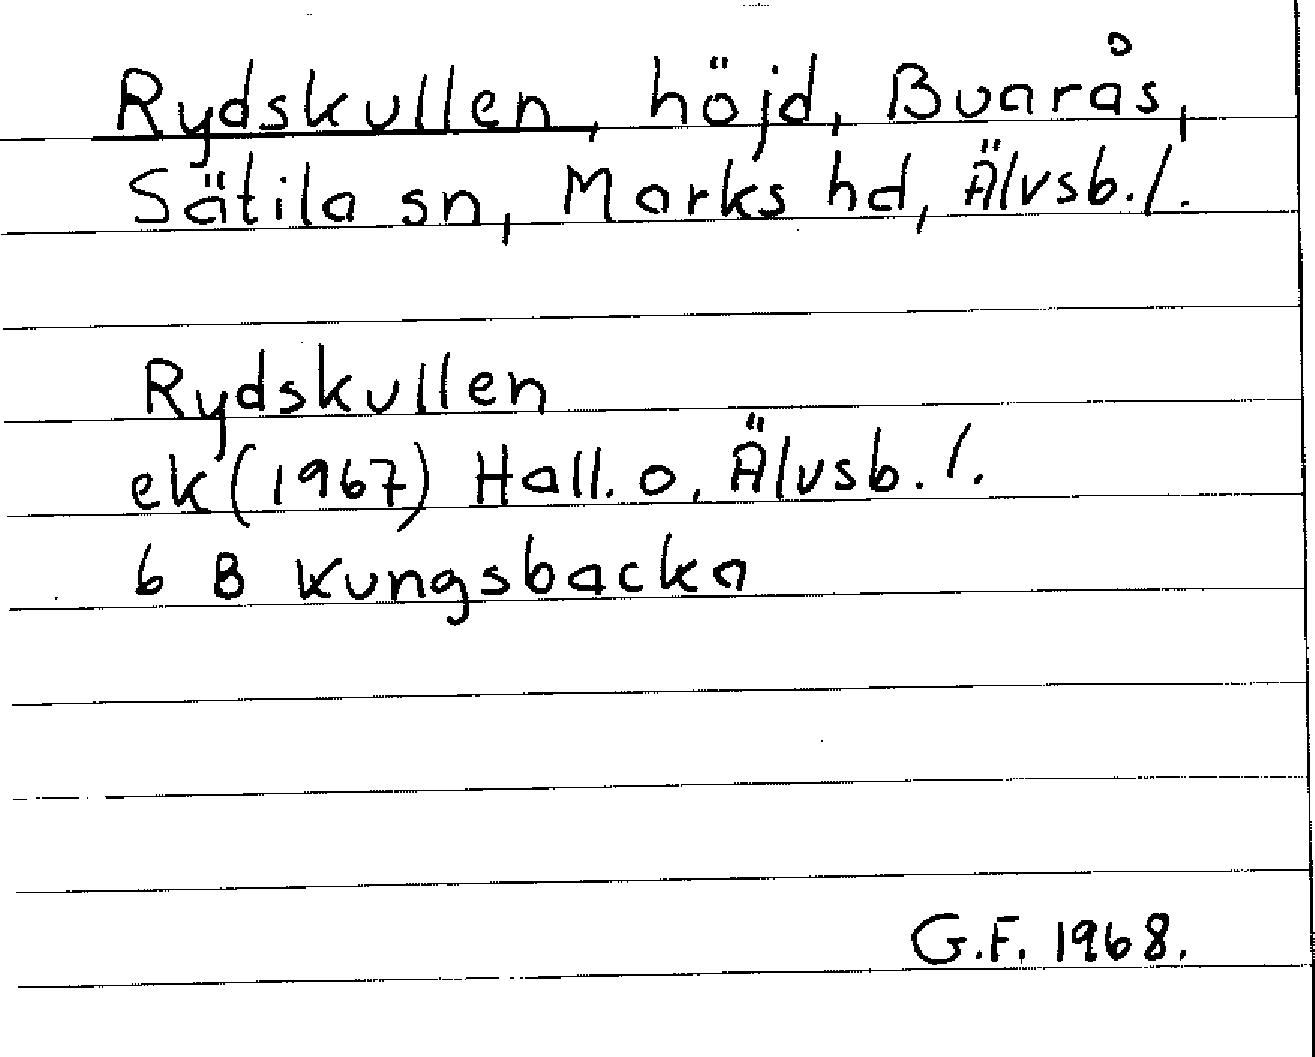 Rydskullen, höjd, Buarås,
Sätila sn, Marks hd, Älvsb. l.
Rydskullen
ek (1967) Hall. o. Älvsb. l.
6 B Kungsbacka
G.F. 1968.